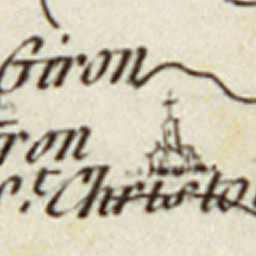 Giron
ron
S.t Christo